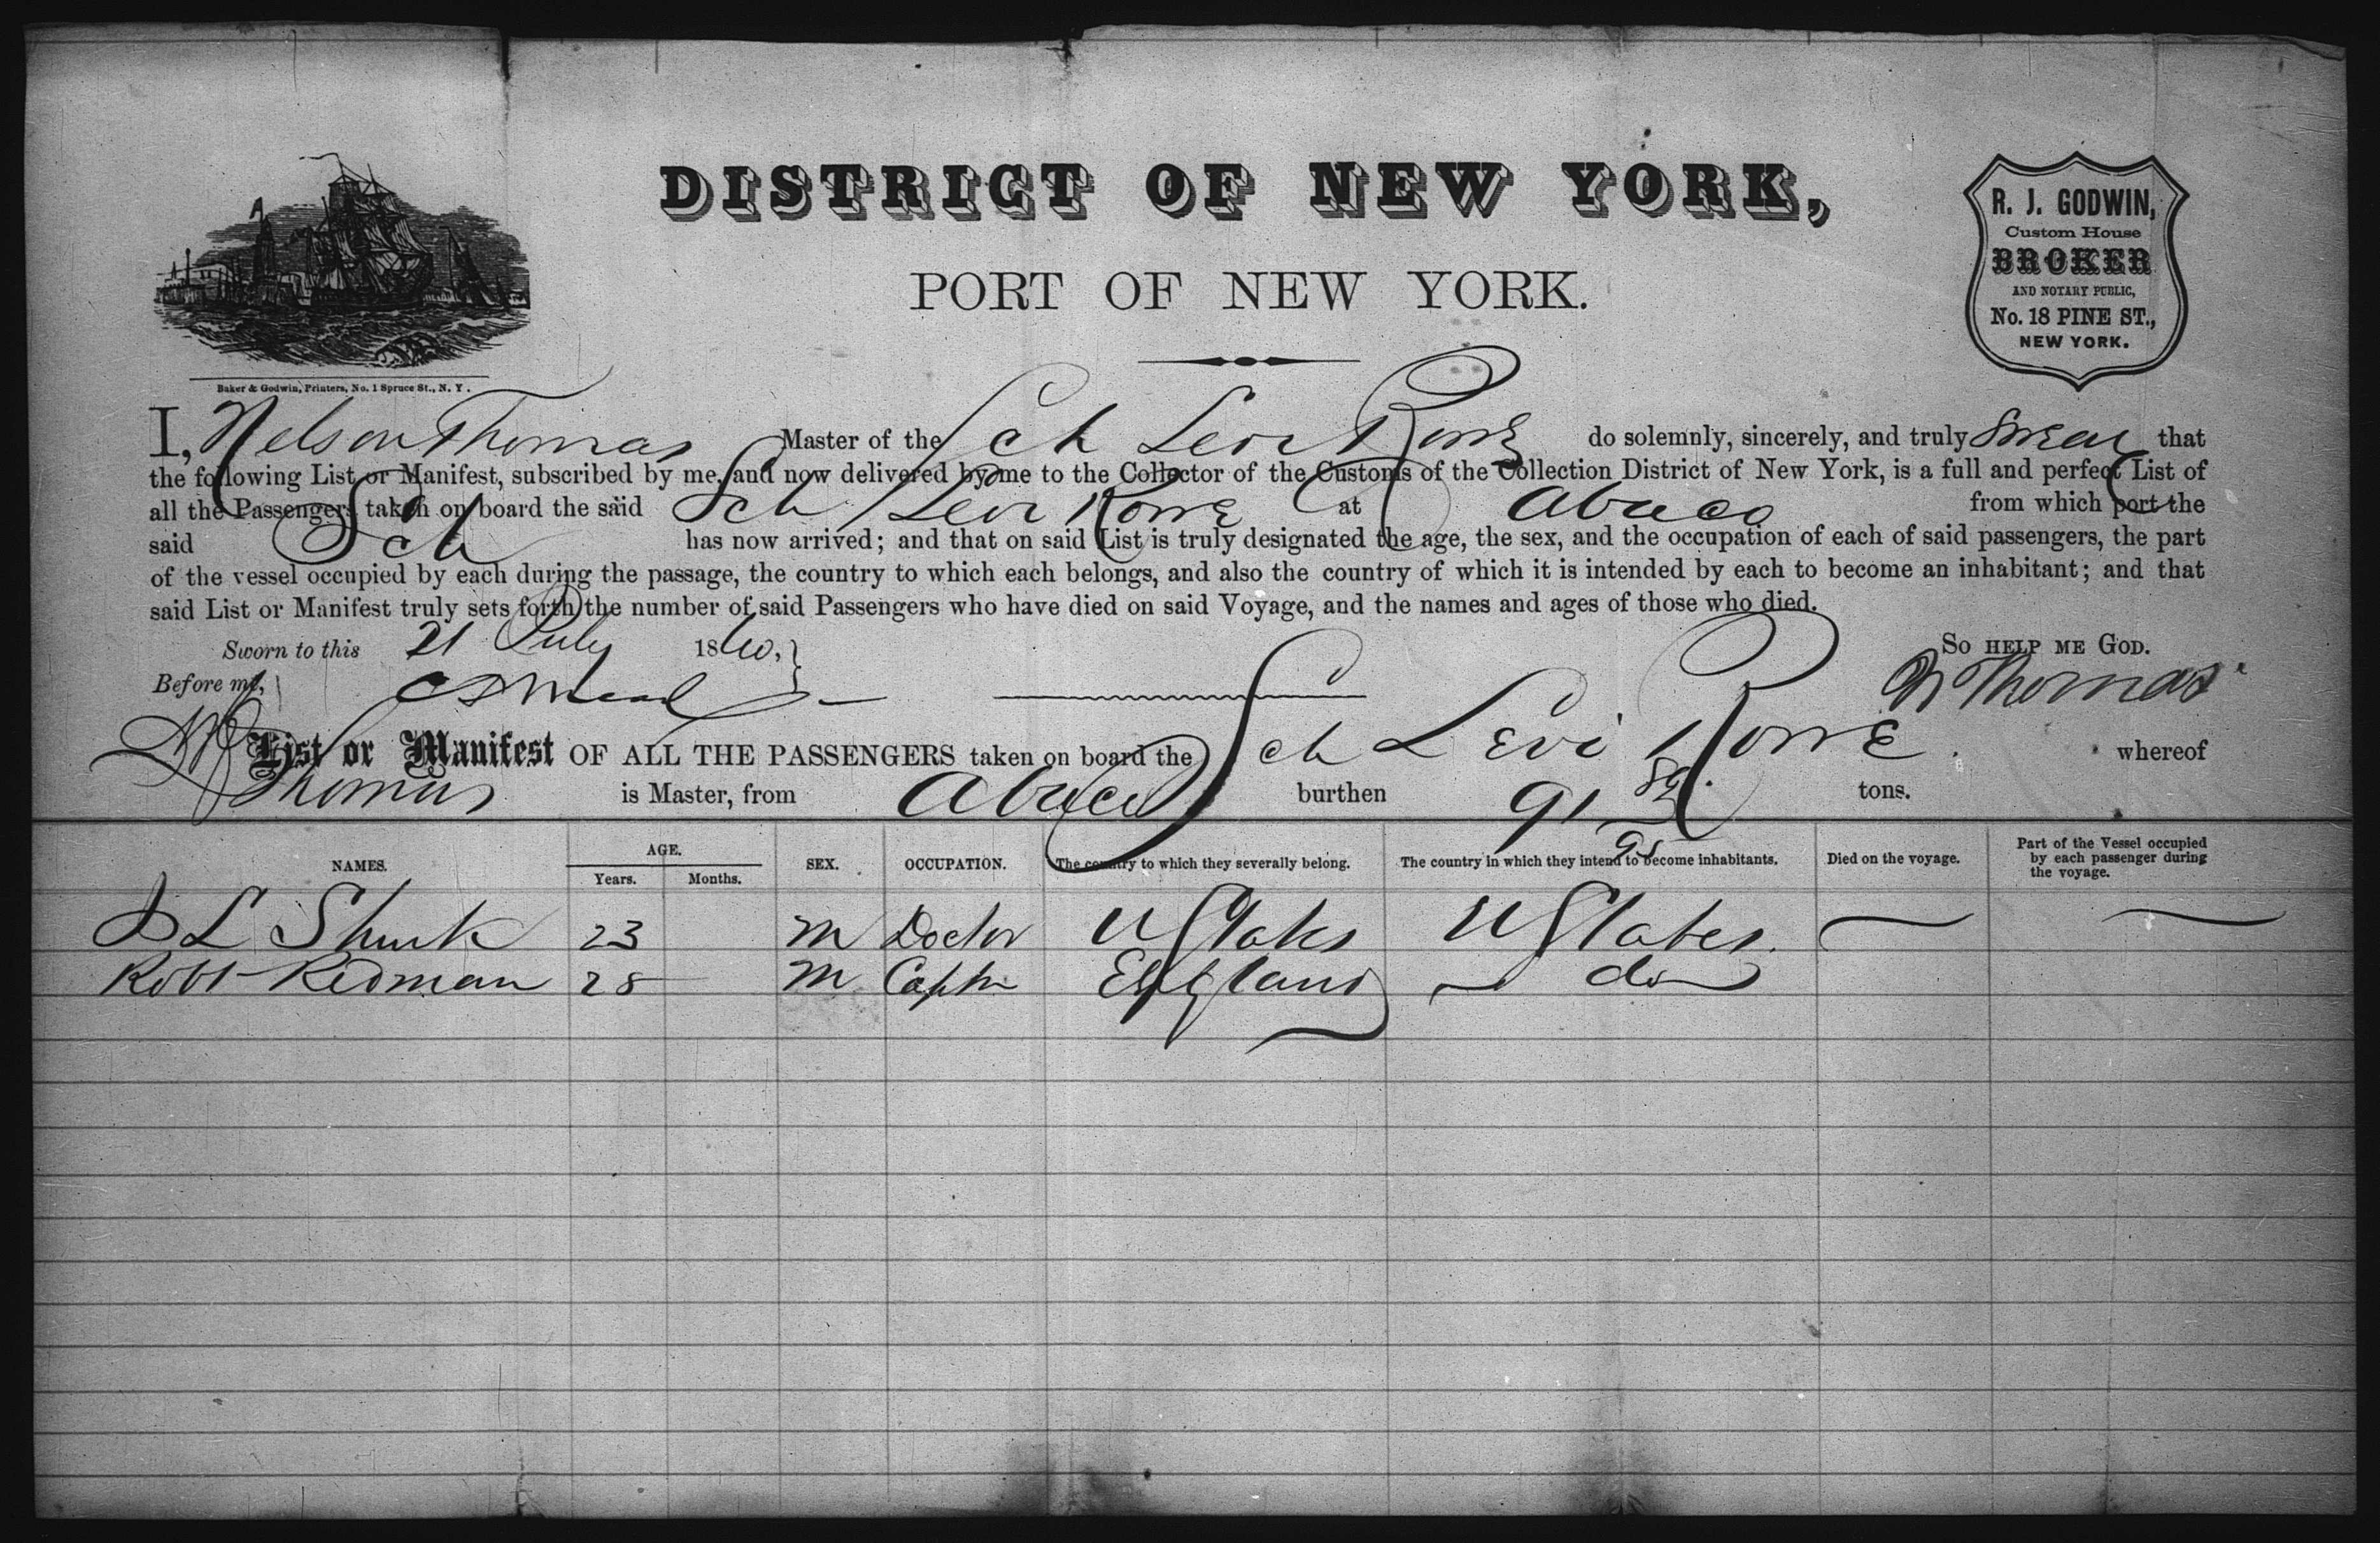 DISTRICT OF NEW YORK,
PORT OF NEW YORK.
R. J. GODWIN,
Custom House
BROKER
AND NOTARY PUBLIC,
No. 18 PINE ST.,
NEW YORK.
Baker & Godwin, Printers, No. 1 Spruce St., N. Y.
I, Nelson Thomas Master of the Sch Levi Rowe do solemnly, sincerely, and truly Swear that
the following List or Manifest, subscribed by me, and now delivered by me to the Collector of the Customs of the Collection District of New York, is a full and perfect List of
all the Passengers taken on board the said Sch Levi Rowe at Abaco from which port the
said Sch has now arrived; and that on said List is truly designated the age, the sex, and the occupation of each of said passengers, the part
of the vessel occupied by each during the passage, the country to which each belongs, and also the country of which it is intended by each to become an inhabitant; and that
said List or Manifest truly sets forth the number of said Passengers who have died on said Voyage, and the names and ages of those who died.
Sworn to this 21 July 1860, So HELP ME GOD.
Before me, N Thomas
List or Manifest OF ALL THE PASSENGERS taken on board the Sch Levi Rowe whereof
Thomas is Master, from Abaco burthen 91 82/95 tons.
NAMES. AGE. Years. Months. SEX. OCCUPATION. The country to which they severally belong. The country in which they intend to become inhabitants. Died on the voyage. Part of the Vessel occupied by each passenger during the voyage.
L Shuck 23 M Doctor U States U States
Robt Redman 28 M Captn England do